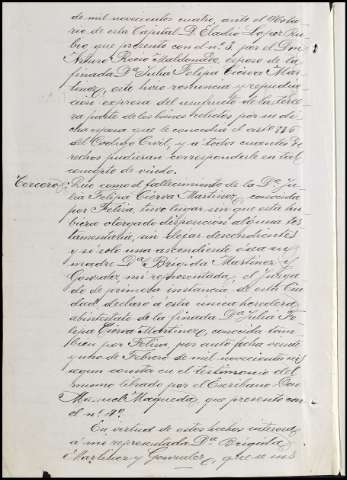 de mil novecientos cuatro, ante el Nota-
rio de esta Capital D. Eladio Lopez Ru-
bio que presento con el nº 3, por el Don
Arturo Rocío Maldonado, esposo de la
finada Dª Julia Felipa Cierva Mar-
tinez, este hizo renuncia y repudia-
cion expresa del usufructo de la terce-
ra parte de los bienes relictos por su di-
cha esposa que le concedía el artº 836
del Codigo Civil, y a todos cuantos de-
rechos pudieran corresponderle en tal
concepto de viudo.
Tercero: Que como el fallecimiento de la Dª Ju-
lia Felipa Cierva Martinez, conocida
por Felisa, tuvo lugar sin que esta hu-
biera otorgado disposicion alguna tes-
tamentaria, sin dejar descendientes
y si solo una ascendiente ó sea su
madre Dª Brigida Martinez y
Gonzalez, mi representada, el Juzga-
do de primera instancia de esta Ciu-
dad declaró á esta unica heredera
abintestato de la finada Dª Julia Fe-
lipa Cierva Martinez, conocida tam-
bien por Felisa, por auto fecha veinte
y uno de Febrero de mil novecientos
segun consta en el testimonio del
mismo librado por el Escribano Don
Manuel Maqueda, que presento con
el nº 4º.
En virtud de estos hechos interesa
á mi representada Dª Brigida
Martinez y Gonzalez, que se ins-